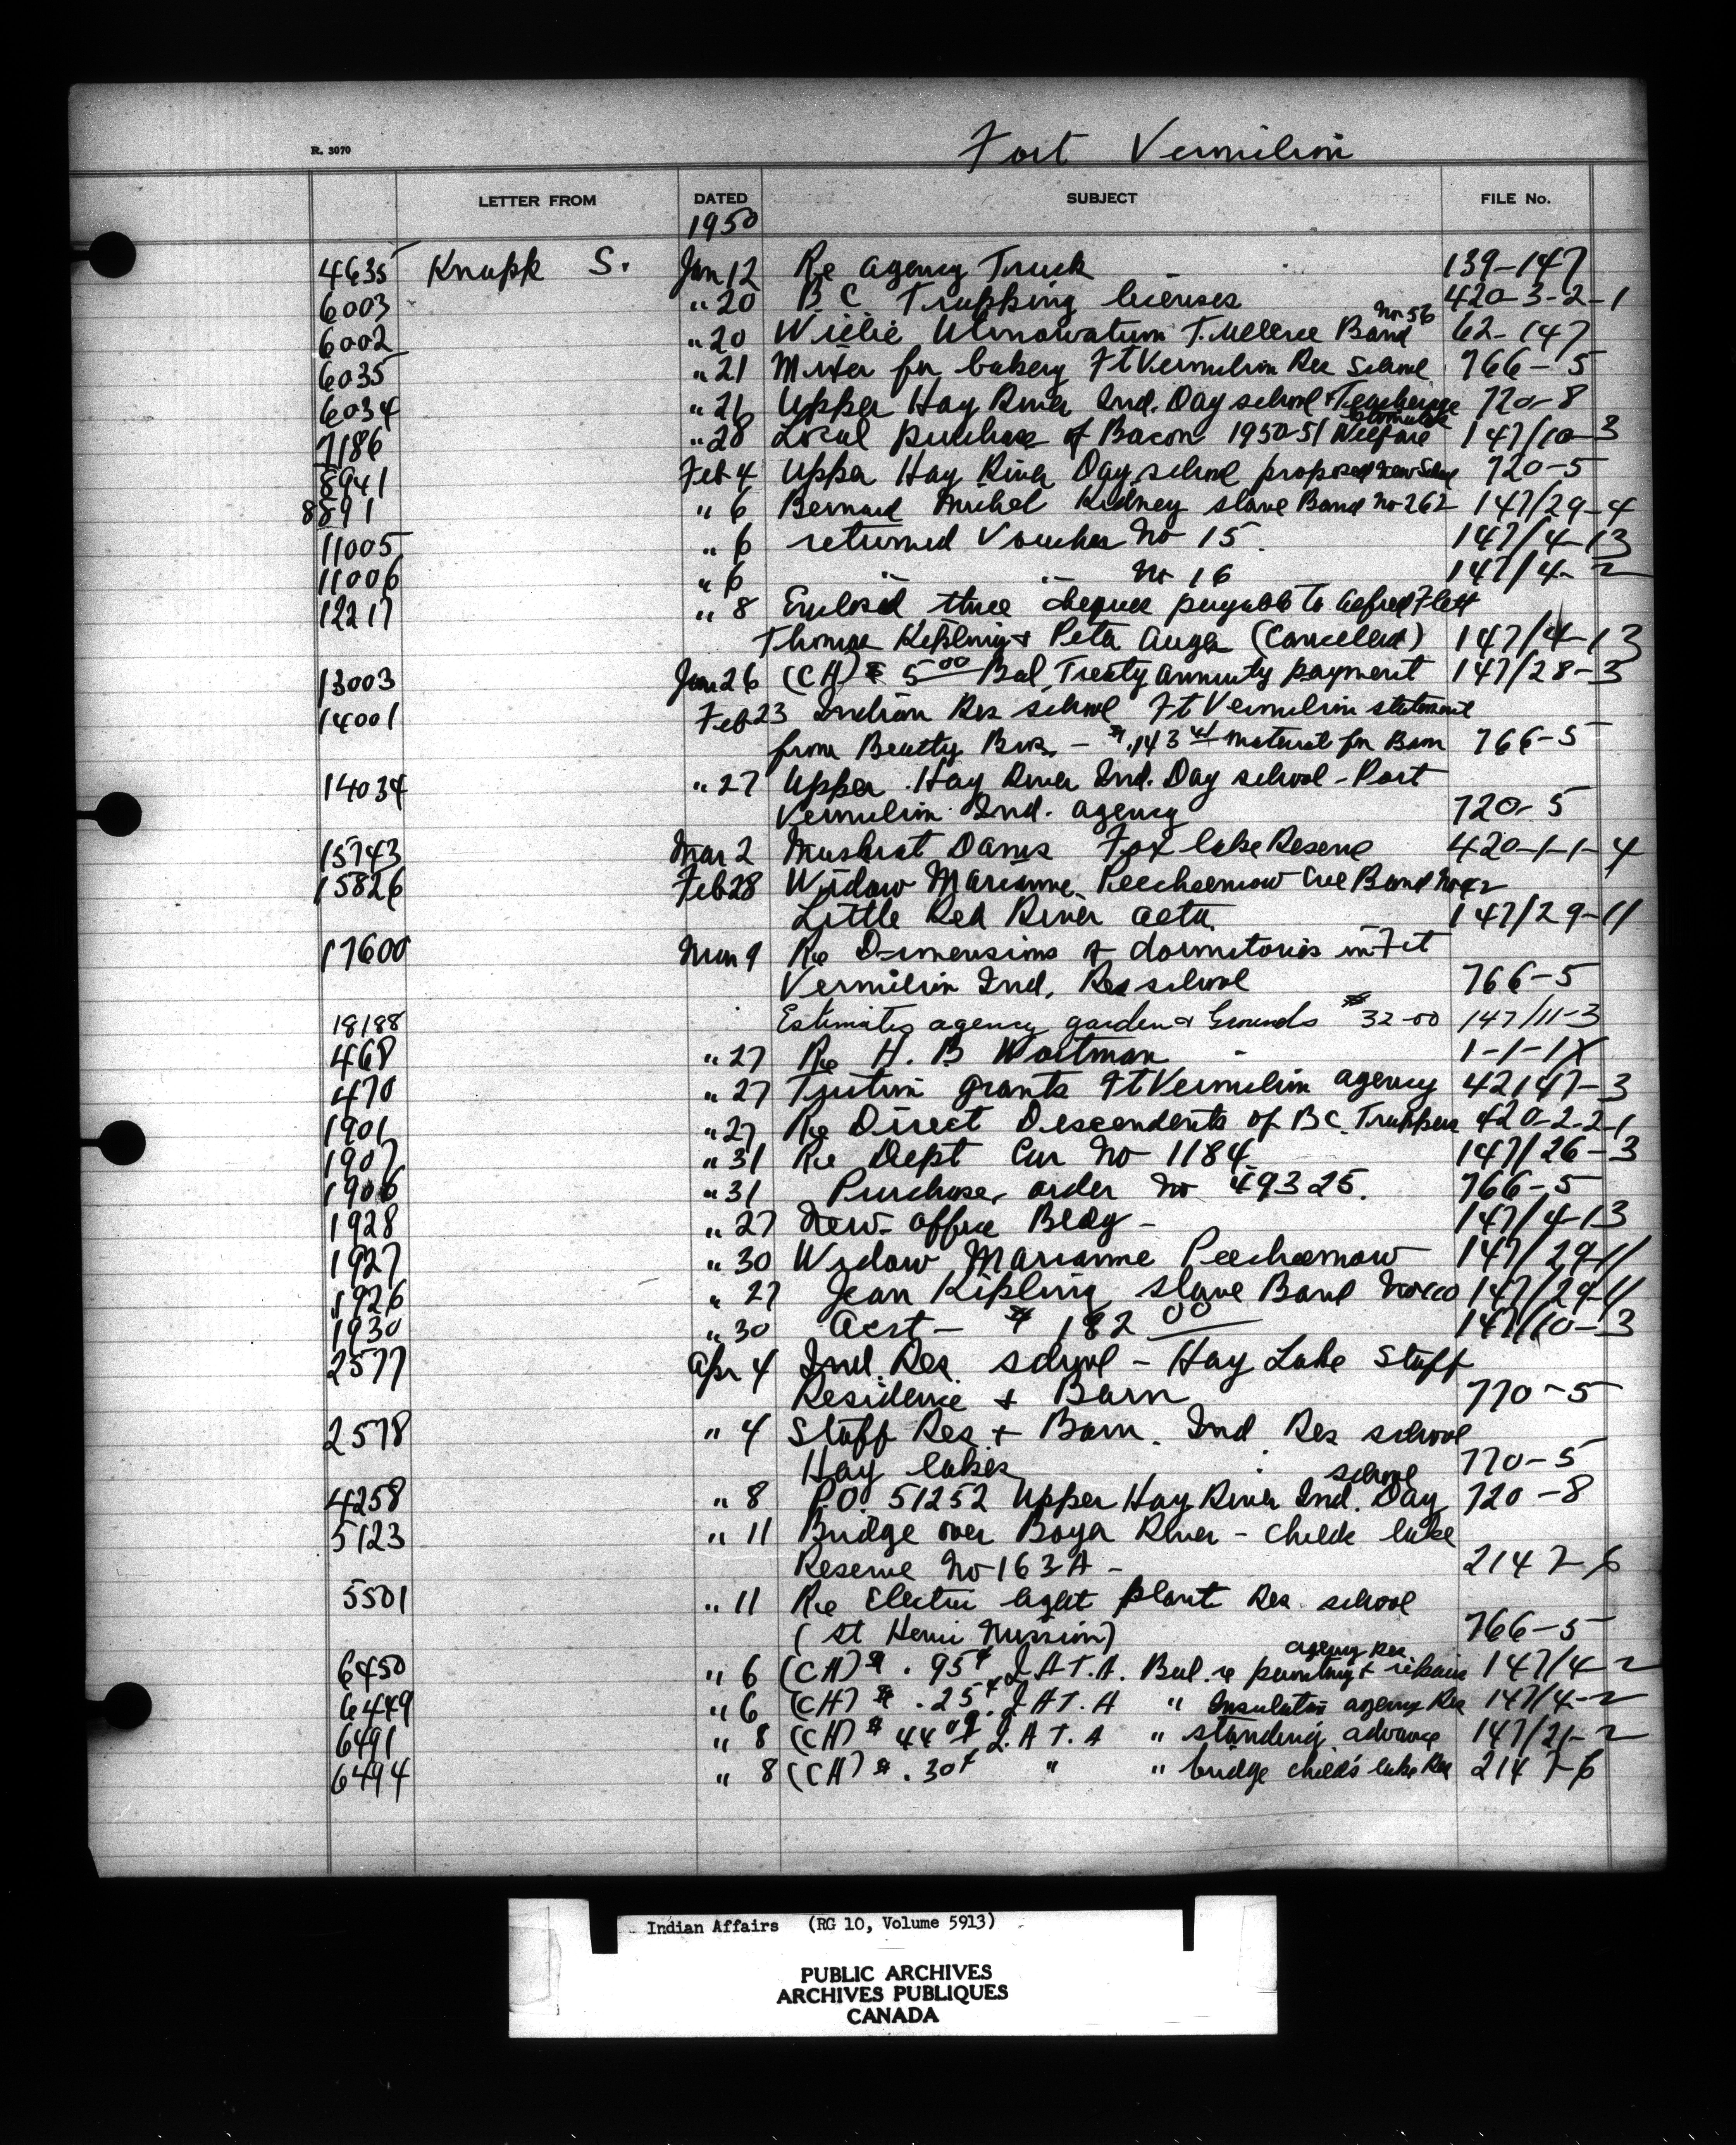 Fort Vermilion
R. 3070
LETTER FROM DATED SUBJECT FILE No.
1950
4635 Knapp S. Jan 12 Re Agency Truck 139-147
6003 " 20 B C Trapping licenses 420-3-2-1
6002 " 20 Willie Band No 56 62-147
6035 " 21 Mixer for bakery Ft Vermilion Res School 766-5
6034 " 21 Upper Hay River Ind. Day school + 720-8
7186 " 28 Local purchase of Bacon 1950-51 Welfare 147/10-3
8941 Feb 4 Upper Hay River Day school proposed new School 720-5
8891 " 6 Bernard Michel Kidney slave Band No 262 147/29-4
11005 " 6 returned Voucher No 15. 147/4-13
11006 " 6 " " No 16 147/4-2
12217 " 8 Enclosed three cheques payable to Alfred Flett
Thomas Kipling + Peter Auger (Cancelled) 147/4-13
13003 Jan 26 (CH) $ 5 00 Bal Treaty annuity payment 147/28-3
14001 Feb 23 Indian Res school Ft Vermilion statement
from Beatty Bros - $ 143 41 material for Barn 766-5
14034 " 27 Upper Hay River Ind. Day school - Port
Vermilion Ind. Agency 720-5
15743 Mar 2 Muskrat Dams Fox lake Reserve 420-1-1-4
15826 Feb 28 Widow Marianne Peecheemow Cree Band No 42
Little Red River 147/29-11
17600 Mar 9 Re Dimensions of dormitories in Ft
Vermilion Ind. Res school 766-5
18188 Estimates agency garden & Grounds $32-00 147/11-3
468 " 27 Re H. B Wortman - 1-1-1X
470 " 27 Tuition grants Ft Vermilion agency 42147-3
1901 " 27 Re Direct Descendents of BC. Trappers 420-2-2-1
1907 " 31 Re Dept Car No 1184 147/26-3
1906 " 31 Purchase order No 49325. 766-5
1928 " 27 New office Bldg - 147/4-13
1927 " 30 Widow Marianne Peecheemow 147/29-11
1926 " 27 Jean Kipling slave Band 147/29-11
1930 " 30 Acct - $ 182 00 147/10-3
2577 Apr 4 Ind. Res. school - Hay Lake Staff
Residence + Barn 770-5
2578 " 4 Staff Res + Barn. Ind Res school
Hay lakes 770-5
4258 " 8 P.O. 51252 Upper Hay River Ind. Day school 720-8
5123 " 11 Bridge over Boyer River - Childs lake
Reserve No 163A - 2147-6
5501 " 11 Re Electric light plant Res school
(St Henri Mission) 766-5
6450 " 6 (CH) $ .95¢ I.A T.A. Bal. re painting + repairs agency Res 147/4-2
6449 " 6 (CH) $ .25¢ I.A T.A " Insulation agency Res 147/4-2
6491 " 8 (CH) $ 44 09 I.A T.A " standing advance 147/21-2
6494 " 8 (CH) $ .30¢ " " bridge childs lake Res 2147-6
Indian Affairs (RG 10, Volume 5913)
PUBLIC ARCHIVES
ARCHIVES PUBLIQUES
CANADA